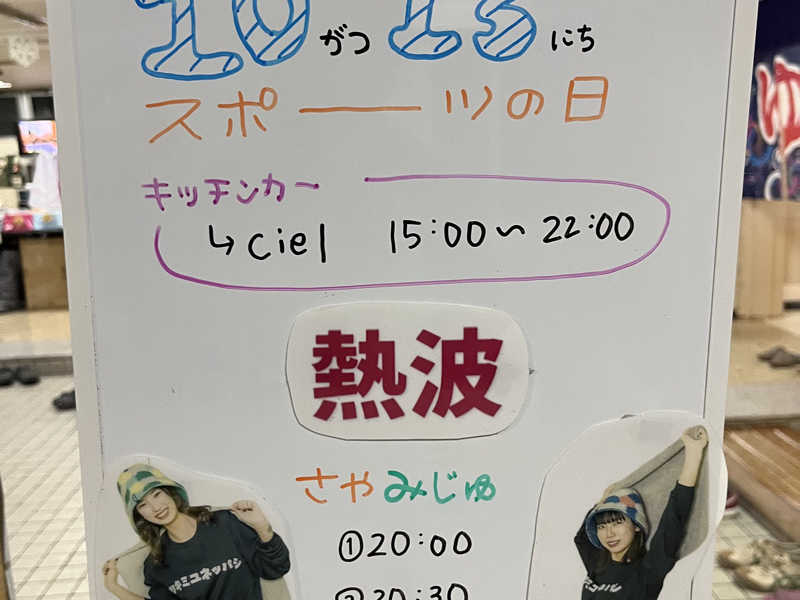 10がつ13にち
スポーツの日
キッチンカー
↳ ciel 15:00〜22:00
熱波
さやみじゅ
①20:00
②20:30